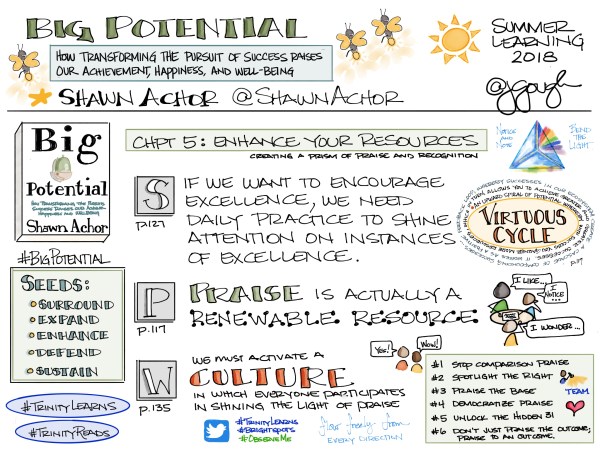 BIG POTENTIAL
HOW TRANSFORMING THE PURSUIT OF SUCCESS RAISES
OUR ACHIEVEMENT, HAPPINESS, AND WELL-BEING
SHAWN ACHOR @SHAWNACHOR
SUMMER
LEARNING
2018
@jgough
Big
Potential
HOW TRANSFORMING THE PURSUIT OF
SUCCESS RAISES OUR ACHIEVEMENT,
HAPPINESS AND WELL-BEING
Shawn Achor
#BIGPOTENTIAL
SEEDS:
SURROUND
EXPAND
ENHANCE
DEFEND
SUSTAIN
#TRINITYLEARNS
#TRINITYREADS
CHPT 5: ENHANCE YOUR RESOURCES
CREATING A PRISM OF PRAISE AND RECOGNITION
NOTICE
AND
NOTE
BEND
THE
LIGHT
S
P.127
IF WE WANT TO ENCOURAGE
EXCELLENCE, WE NEED
DAILY PRACTICE TO SHINE
ATTENTION ON INSTANCES
OF EXCELLENCE.
VIRTUOUS
CYCLE
P
P.117
PRAISE IS ACTUALLY A
RENEWABLE RESOURCE
I LIKE...
I
NOTICE
...
I WONDER...
W
P.135
WE MUST ACTIVATE A
CULTURE
IN WHICH EVERYONE PARTICIPATES
IN SHINING THE LIGHT OF PRAISE
YES!
WOW!
#TRINITYLEARNS
#BRIGHTSPOTS
#OBSERVEME
Flow freely from
EVERY DIRECTION
#1 STOP COMPARISON PRAISE
#2 SPOTLIGHT THE RIGHT
#3 PRAISE THE BASE
#4 DEMOCRATIZE PRAISE
#5 UNLOCK THE HIDDEN 31
#6 DON'T JUST PRAISE THE OUTCOME;
PRAISE TO AN OUTCOME.
TEAM